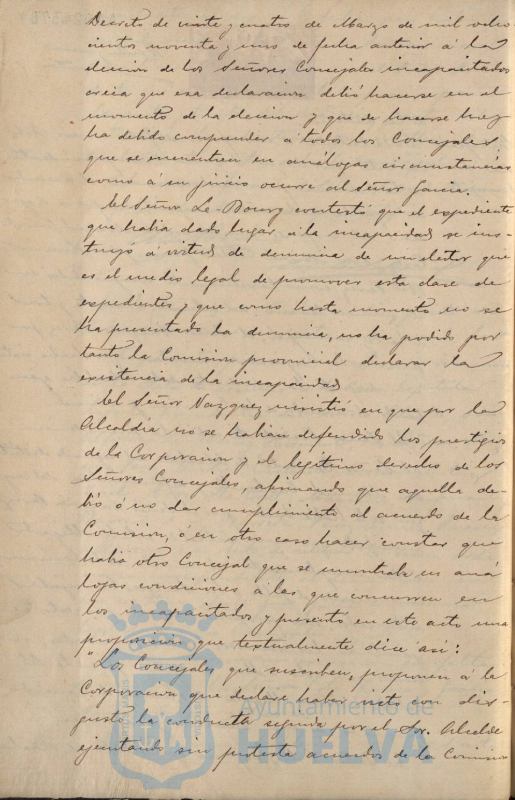 Decreto de veinte y cuatro de Marzo de mil ocho
cientos noventa y uno de fecha anterior á la
eleccion de los Señores Concejales incapacitados
creia que esa declaracion debió hacerse en el
momento de la eleccion y que de hacerse hoy
ha debido comprender á todos los Concejales
que se encuentren en análogas circunstancias
como á su juicio ocurre al Señor Garcia.
El Señor Le-Bourg contestó que el expediente
que habia dado lugar á la incapacidad se ins-
truyó á virtud de denuncia de un elector que
es el medio legal de promover esta clase de
expedientes y que como hasta momento no se
ha presentado la denuncia, no ha podido por
tanto la Comision provincial declarar la
existencia de la incapacidad
El Señor Vazquez insistió en que por la
Alcaldia no se habian defendido los prestigios
de la Corporacion y el legítimo derecho de los
Señores Concejales, afirmando que aquella de-
bió ó no dar cumplimiento al acuerdo de la
Comision, ó en otro caso hacer constar que
habia otro Concejal que se encontraba en aná
logas condiciones á las que concurren en
los incapacitados y presentó en este acto una
proposicion que textualmente dice así:
"Los Concejales que suscriben, proponen á la
Corporacion que declare haber visto con dis-
gusto la conducta seguida por el Sor. Alcalde
ejecutando sin protesta acuerdos de la Comision
Ayuntamiento de
HUELVA